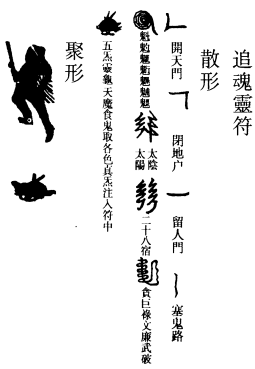 追魂靈符
散形
開天門
閉地户
留人門
塞鬼路
太陰
太陽
二十八宿
貪巨祿文廉武破
五炁靈龜 天魔食鬼取各色真炁注入符中
聚形